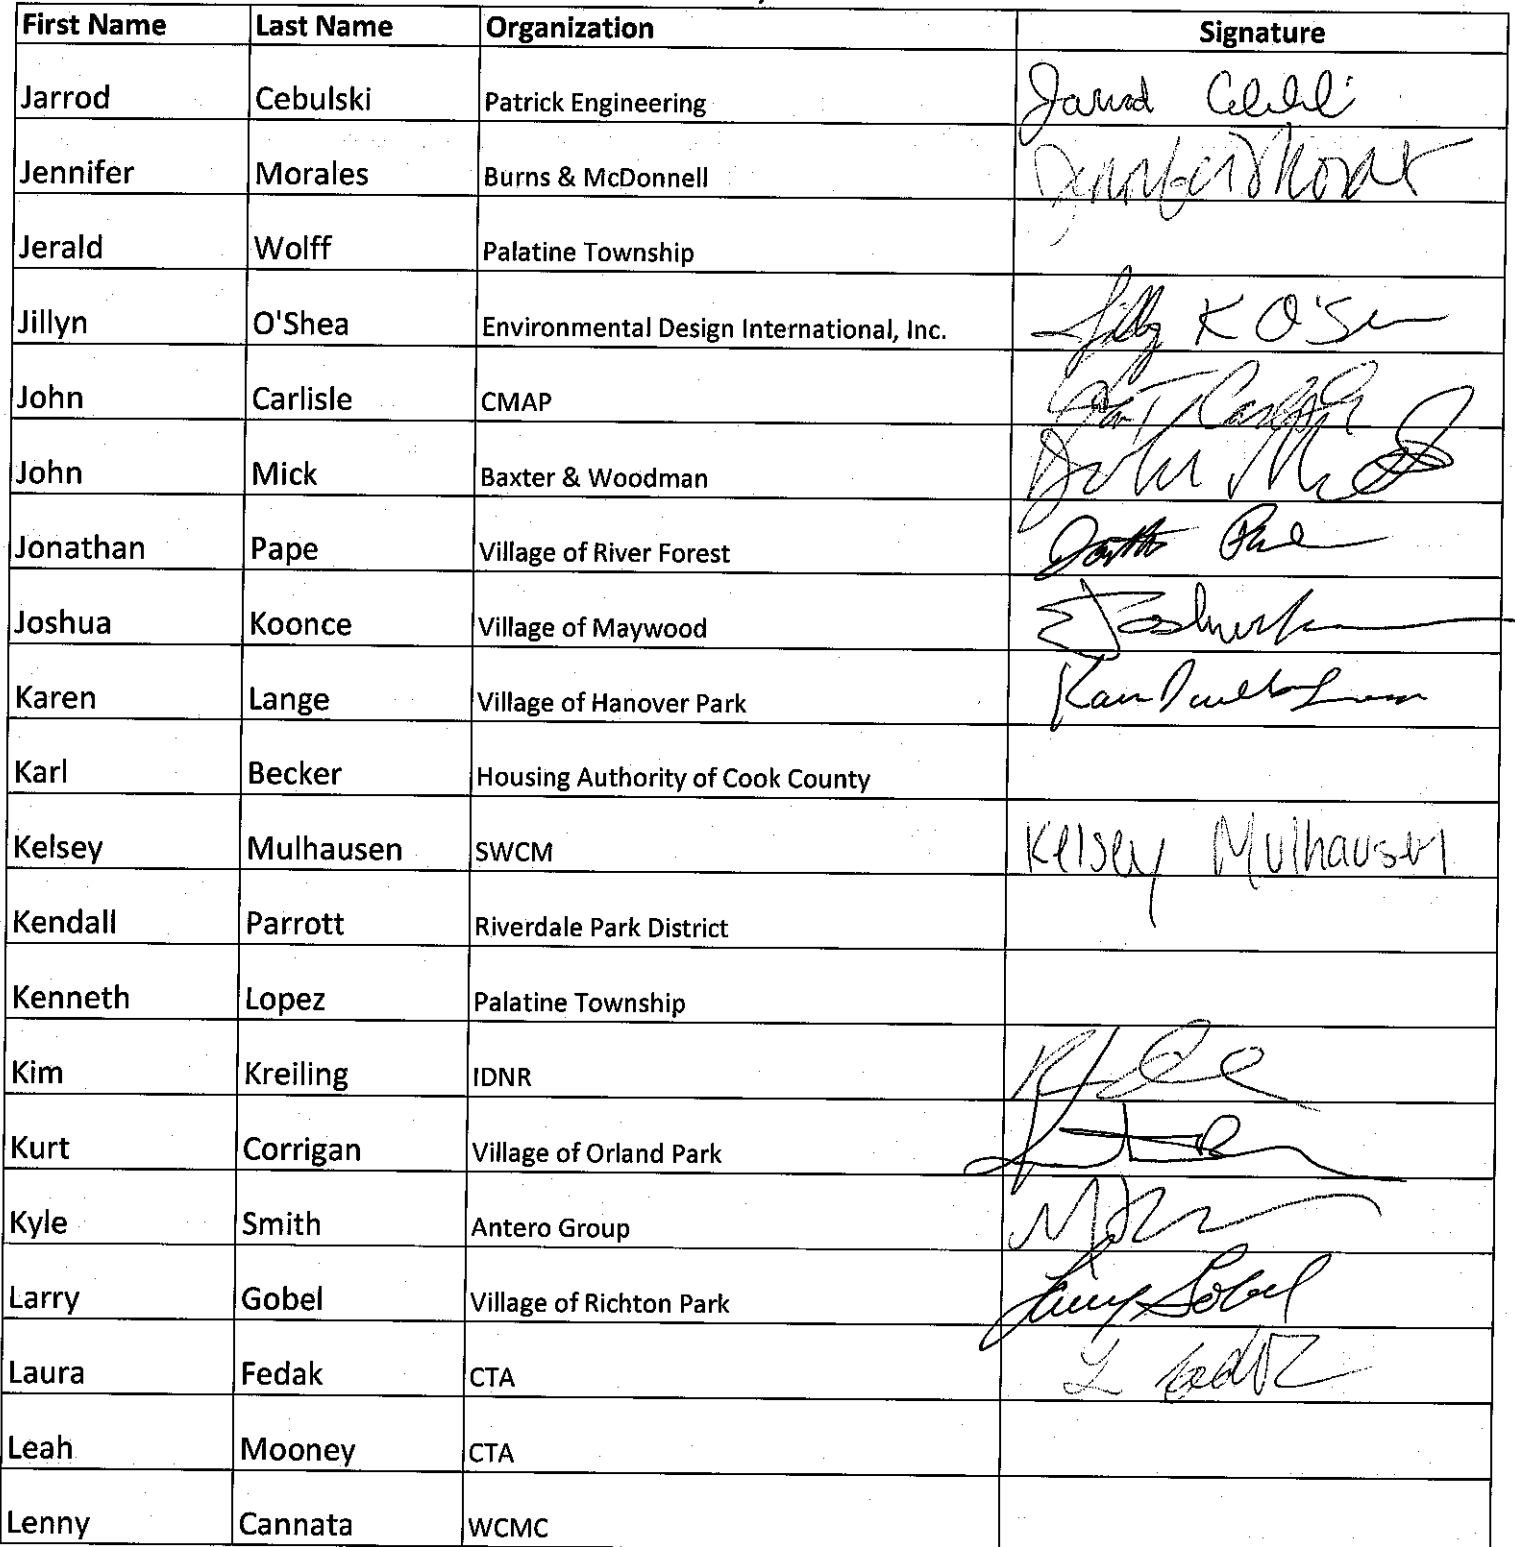 First Name Last Name Organization Signature
Jarrod Cebulski Patrick Engineering Jarrod Cebulski
Jennifer Morales Burns & McDonnell Jennifer Morales
Jerald Wolff Palatine Township
Jillyn O'Shea Environmental Design International, Inc. K O'S
John Carlisle CMAP
John Mick Baxter & Woodman John
Jonathan Pape Village of River Forest
Joshua Koonce Village of Maywood Joshua
Karen Lange Village of Hanover Park Karen
Karl Becker Housing Authority of Cook County
Kelsey Mulhausen SWCM Kelsey Mulhausen
Kendall Parrott Riverdale Park District
Kenneth Lopez Palatine Township
Kim Kreiling IDNR
Kurt Corrigan Village of Orland Park
Kyle Smith Antero Group
Larry Gobel Village of Richton Park Larry Gobel
Laura Fedak CTA L Fedak
Leah Mooney CTA
Lenny Cannata WCMC